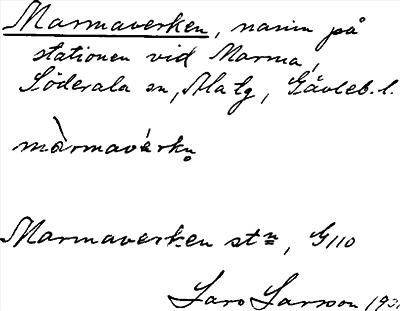 Marmaverken, namn på
stationen vid Marma,
Söderala sn, Ala tg, Gävleb. l.
màrmavérkn̥
Marmaverken stn, G110
Lars Larsson